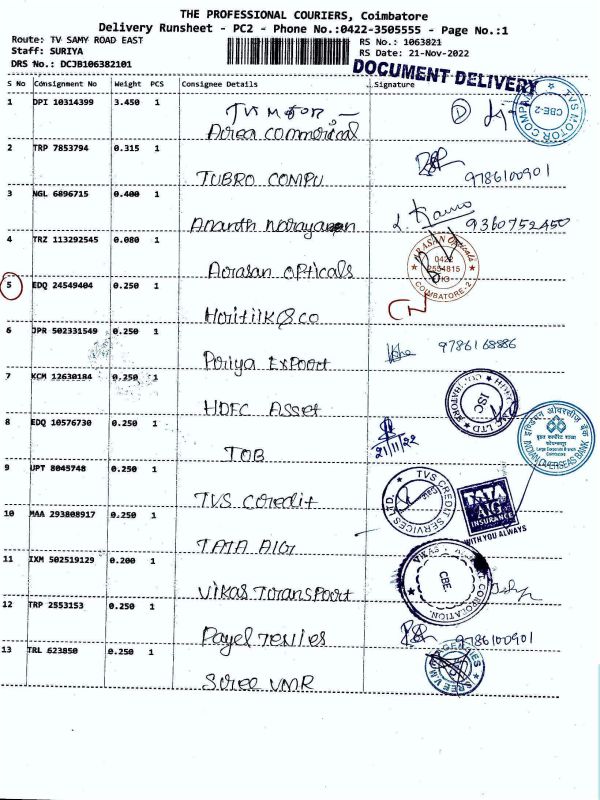 THE PROFESSIONAL COURIERS, Coimbatore
Delivery Runsheet - PC2 - Phone No.:0422-3505555 - Page No.:1
Route: TV SAMY ROAD EAST RS No.: 1063821
Staff: SURIYA RS Date: 21-Nov-2022
DRS No.: DCJB106382101
DOCUMENT DELIVERY
S No Consignment No Weight PCS Consignee Details Signature
1 DPI 10314399 3.450 1 TVS MOTOR
TVS MOTOR COMPANY CBE-2
2 TRP 7853794 0.315 1
TUBRO COMPU 9786100901
3 NGL 6896715 0.400 1
Ananth Narayanan 9360752450
4 TRZ 113292545 0.080 1
Aorasan opticals
ARASAN Opticals 0422 2554815 COIMBATORE-2
5 EDQ 24549404 0.250 1
6 JPR 502331549 0.250 1
Poriya Expoort 9786168886
7 KCM 12630184 0.250 1
HDFC Asset
ISC
8 EDQ 10576730 0.250 1
21/11/22
इण्डियन ओवरसीज़ बैंक
INDIAN OVERSEAS BANK
9 UPT 8045748 0.250 1
TVS Coredit
TVS CREDIT SERVICES LTD.
TATA AIG INSURANCE
WITH YOU ALWAYS
10 MAA 293808917 0.250 1
TATA AIG
11 IXM 502519129 0.200 1
Vikas Toranspoort
CBE
12 TRP 2553153 0.250 1
Payel 9786100901
13 TRL 623850 0.250 1
Soree VMR